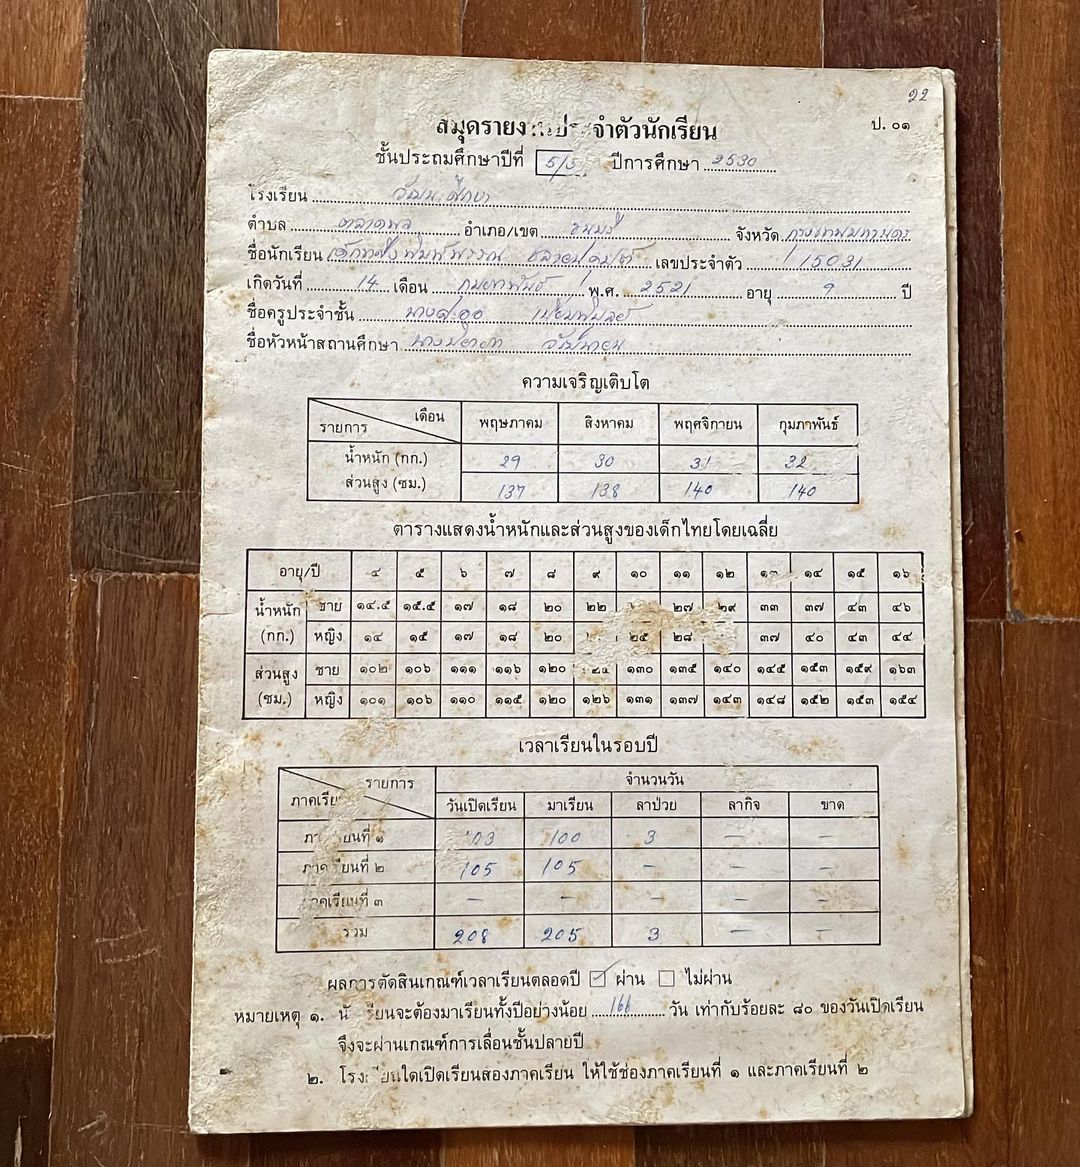 22
สมุดรายง
จำตัวนักเรียน
ป. ๐๑
ชั้นประถมศึกษาปีที่ 5/5 ปีการศึกษา 2530
โรงเรียน วัฒนศึกษา
ตำบล ตลาดพลู อำเภอ/เขต ธนบุรี จังหวัด กรุงเทพมหานคร
ชื่อนักเรียน เด็กหญิงพิมพ์พรรณ เลขประจำตัว 15031
เกิดวันที่ 14 เดือน กุมภาพันธ์ พ.ศ. 2521 อายุ 9 ปี
ชื่อครูประจำชั้น
ชื่อหัวหน้าสถานศึกษา
ความเจริญเติบโต
รายการ เดือน พฤษภาคม สิงหาคม พฤศจิกายน กุมภาพันธ์
น้ำหนัก (กก.) 29 30 31 32
ส่วนสูง (ซม.) 137 138 140 140
ตารางแสดงน้ำหนักและส่วนสูงของเด็กไทยโดยเฉลี่ย
อายุ/ปี ๔ ๕ ๖ ๗ ๘ ๙ ๑๐ ๑๑ ๑๒ ๑๓ ๑๔ ๑๕ ๑๖
น้ำหนัก (กก.) ชาย ๑๔.๕ ๑๕.๕ ๑๗ ๑๘ ๒๐ ๒๒ ๒๗ ๒๙ ๓๓ ๓๗ ๔๓ ๔๖
หญิง ๑๔ ๑๕ ๑๗ ๑๘ ๒๐ ๒๕ ๒๘ ๓๗ ๔๐ ๔๓ ๔๔
ส่วนสูง (ซม.) ชาย ๑๐๒ ๑๐๖ ๑๑๑ ๑๑๖ ๑๒๐ ๑๓๐ ๑๓๕ ๑๔๐ ๑๔๕ ๑๕๓ ๑๕๙ ๑๖๓
หญิง ๑๐๑ ๑๐๖ ๑๑๐ ๑๑๕ ๑๒๐ ๑๒๖ ๑๓๑ ๑๓๗ ๑๔๓ ๑๔๘ ๑๕๒ ๑๕๓ ๑๕๔
เวลาเรียนในรอบปี
รายการ จำนวนวัน
ภาคเรีย วันเปิดเรียน มาเรียน ลาป่วย ลากิจ ขาด
ภา เรียนที่ ๑ 103 100 3 – –
ภาคเรียนที่ ๒ 105 105 – – –
ภาคเรียนที่ ๓ – – – – –
รวม 208 205 3 – –
ผลการตัดสินเกณฑ์เวลาเรียนตลอดปี ☑ ผ่าน ☐ ไม่ผ่าน
หมายเหตุ ๑. นักเรียนจะต้องมาเรียนทั้งปีอย่างน้อย 166 วัน เท่ากับร้อยละ ๘๐ ของวันเปิดเรียน
จึงจะผ่านเกณฑ์การเลื่อนชั้นปลายปี
๒. โรงเรียนใดเปิดเรียนสองภาคเรียน ให้ใช้ช่องภาคเรียนที่ ๑ และภาคเรียนที่ ๒